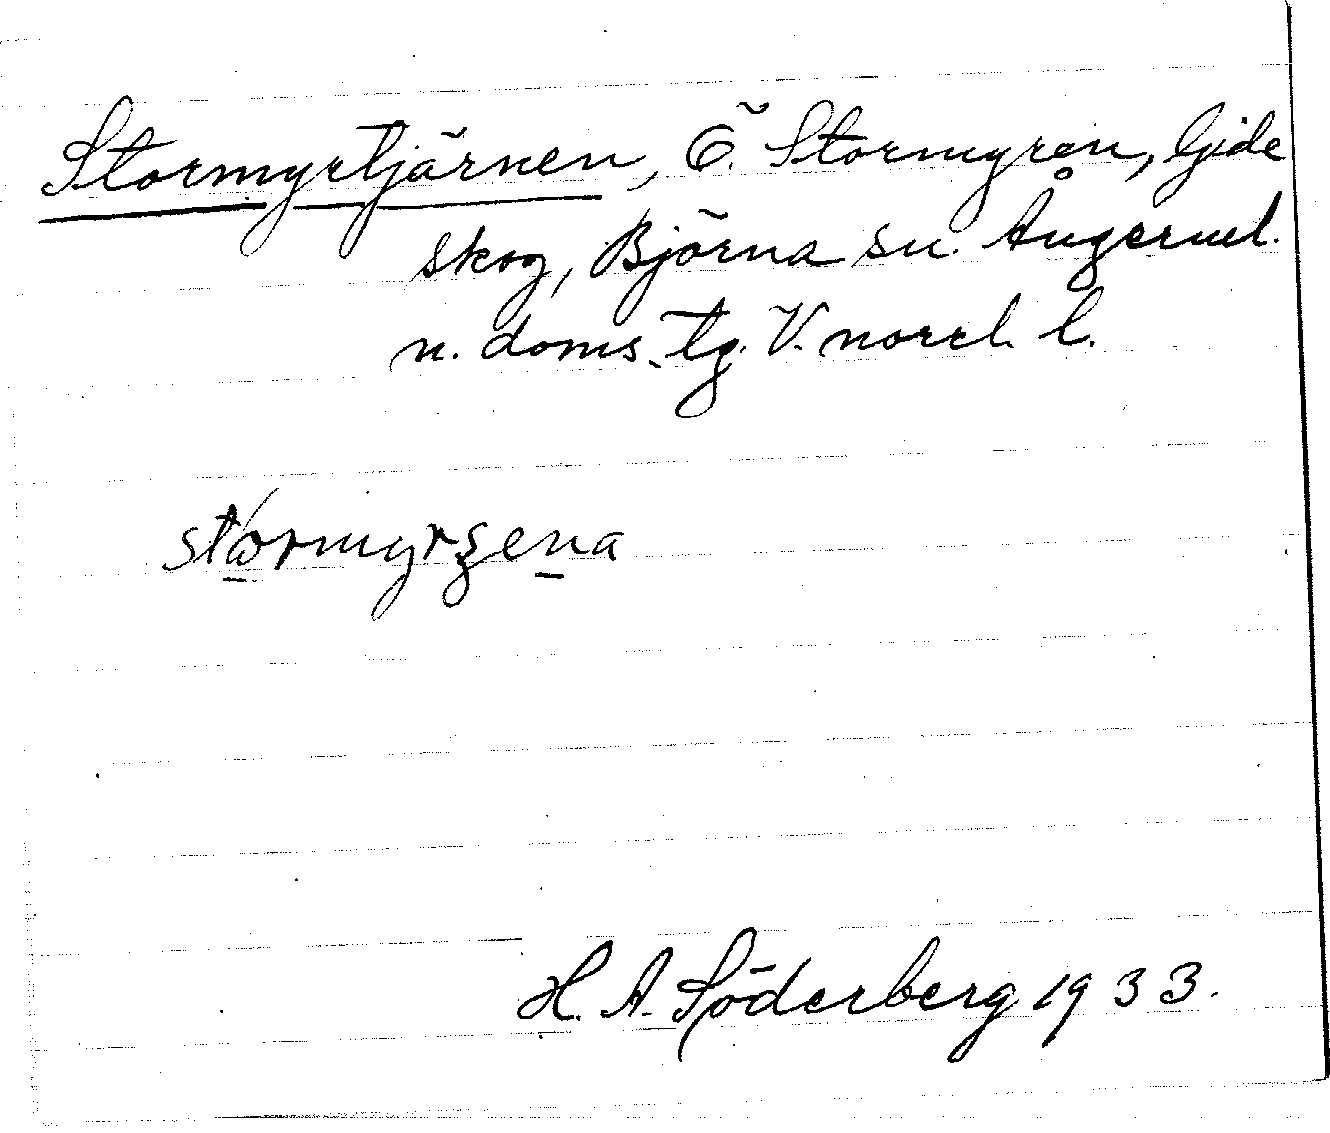 Stormyrtjärnen, Ö. Stormyrån, Gide
skog, Björna sn. Ångerml.
n. doms. tg. V. norrl. l.
stormyrʂena
H. A. Söderberg 1933.